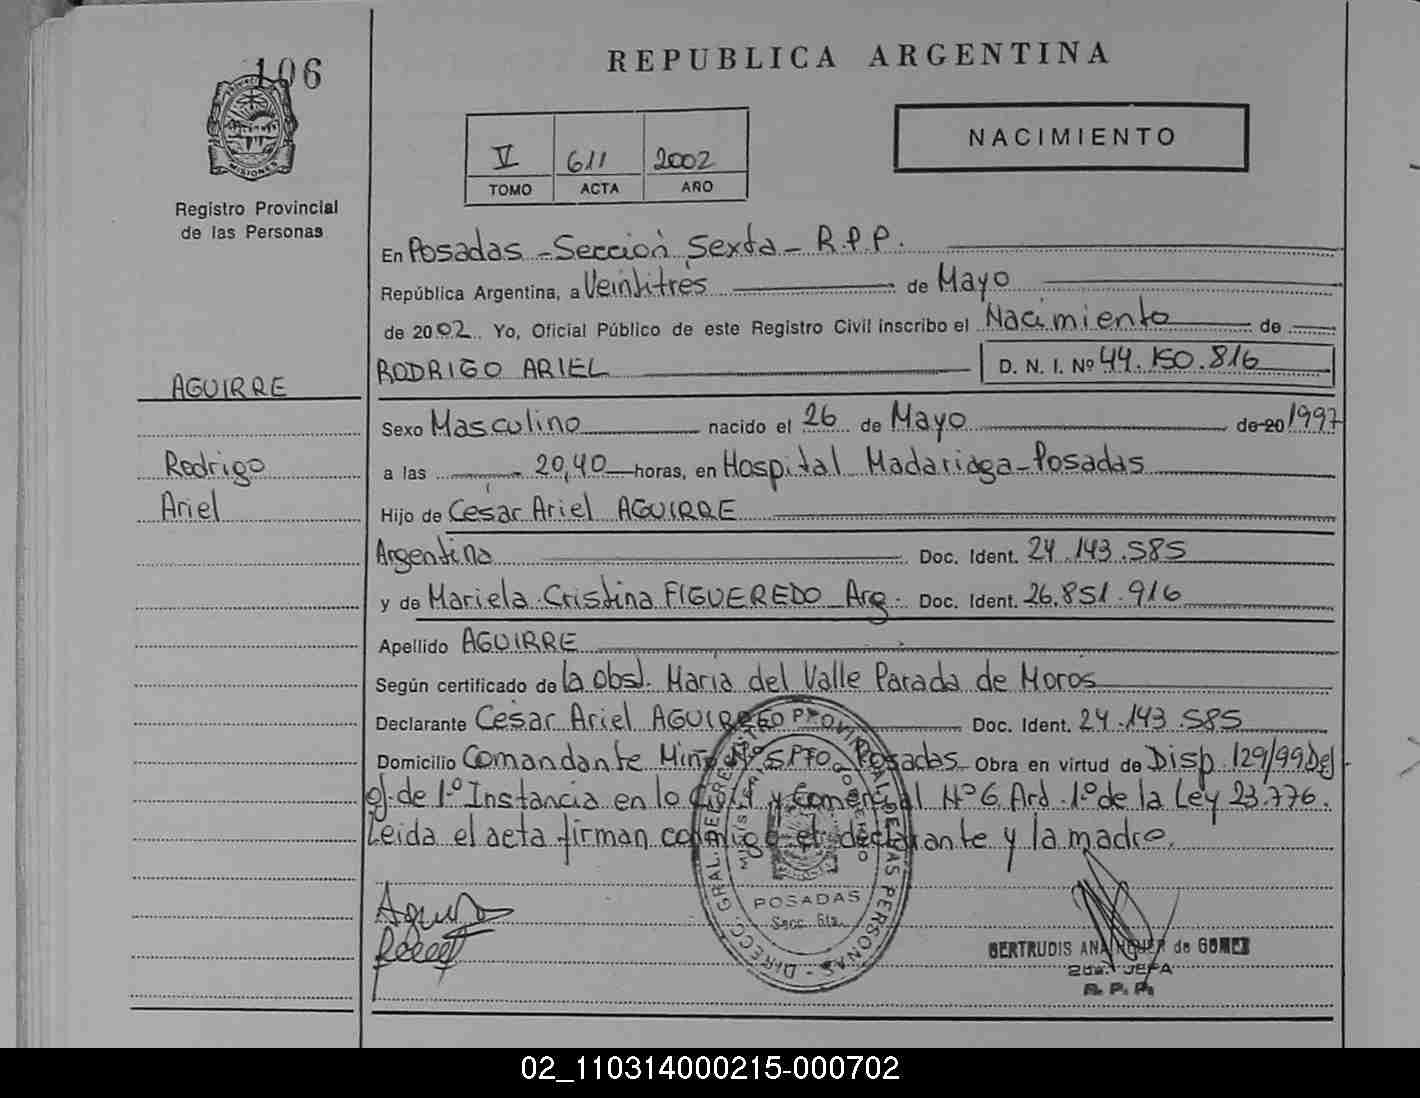 106
REPUBLICA ARGENTINA
NACIMIENTO
V 611 2002
TOMO ACTA AÑO
MISIONES
Registro Provincial
de las Personas
En Posadas - Sección Sexta - R.P.P.
República Argentina, a Veintitrés de Mayo
de 2002. Yo, Oficial Público de este Registro Civil inscribo el Nacimiento de
RODRIGO ARIEL D. N. I. Nº 44.150.816
AGUIRRE
Rodrigo
Ariel
Sexo Masculino nacido el 26 de Mayo de 20 1997
a las 20,40 horas, en Hospital Madariaga - Posadas
Hijo de César Ariel AGUIRRE
Argentina Doc. Ident. 24.143.585
y de Mariela Cristina FIGUEREDO Arg. Doc. Ident. 26.851.916
Apellido AGUIRRE
Según certificado de la obst. María del Valle Parada de Moros
Declarante César Ariel AGUIRRE Doc. Ident. 24.143.585
Domicilio Comandante Posadas Obra en virtud de Disp. 129/99 Del
de 1º Instancia en lo Civil y Comercial Nº 6 Art. 1º de la Ley 23.776.
Leida el acta firman conmigo el declarante y la madre.
DIRECC. GRAL. DE REGISTRO PROVINCIAL DE LAS PERSONAS
POSADAS
Secc. 6ta.
GERTRUDIS ANA de GOMEZ
2da. JEFA
R. P. P.
02_110314000215-000702